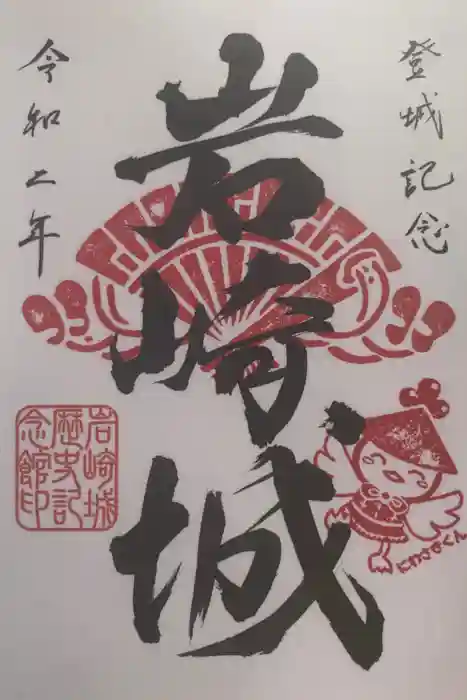 登城記念
岩崎城
令和二年
岩崎城
歴史記
念館印
にわさきくん